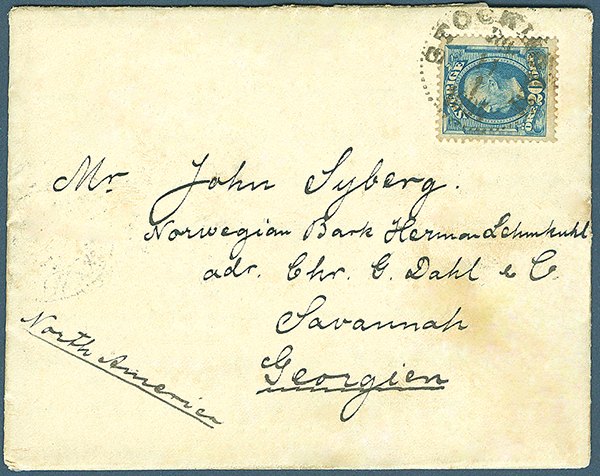 STOCKH
SVERIGE
20
Mr John Syberg.
Norwegian Bark Herman Lehmkuhl
adr. Chr. G. Dahl & C.
Savannah
Georgien
North America